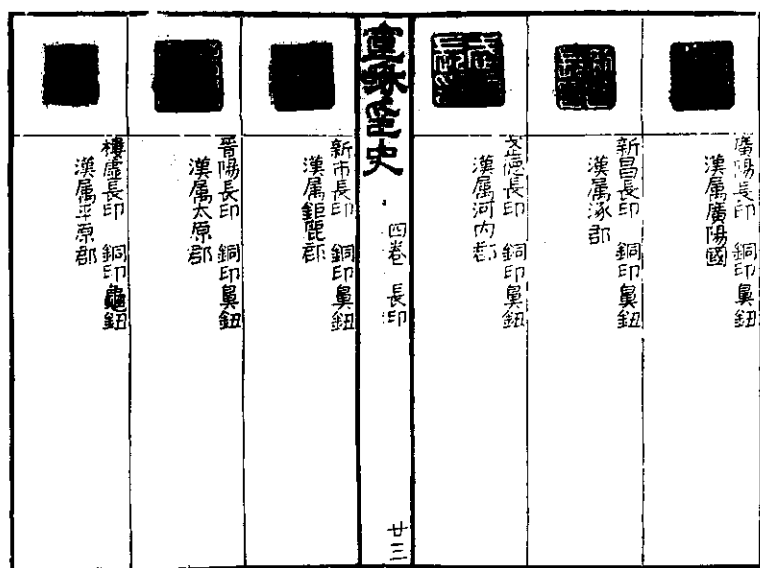 廣陽長印 銅印鼻鈕
漢属廣陽國
新昌長印 銅印鼻鈕
漢属涿郡
德長印 銅印鼻鈕
漢属河内郡
史
四卷 長印
廿三
新市長印 銅印鼻鈕
漢属鉅鹿郡
晋陽長印 銅印鼻鈕
漢属太原郡
樓虛長印 銅印龜鈕
漢属平原郡